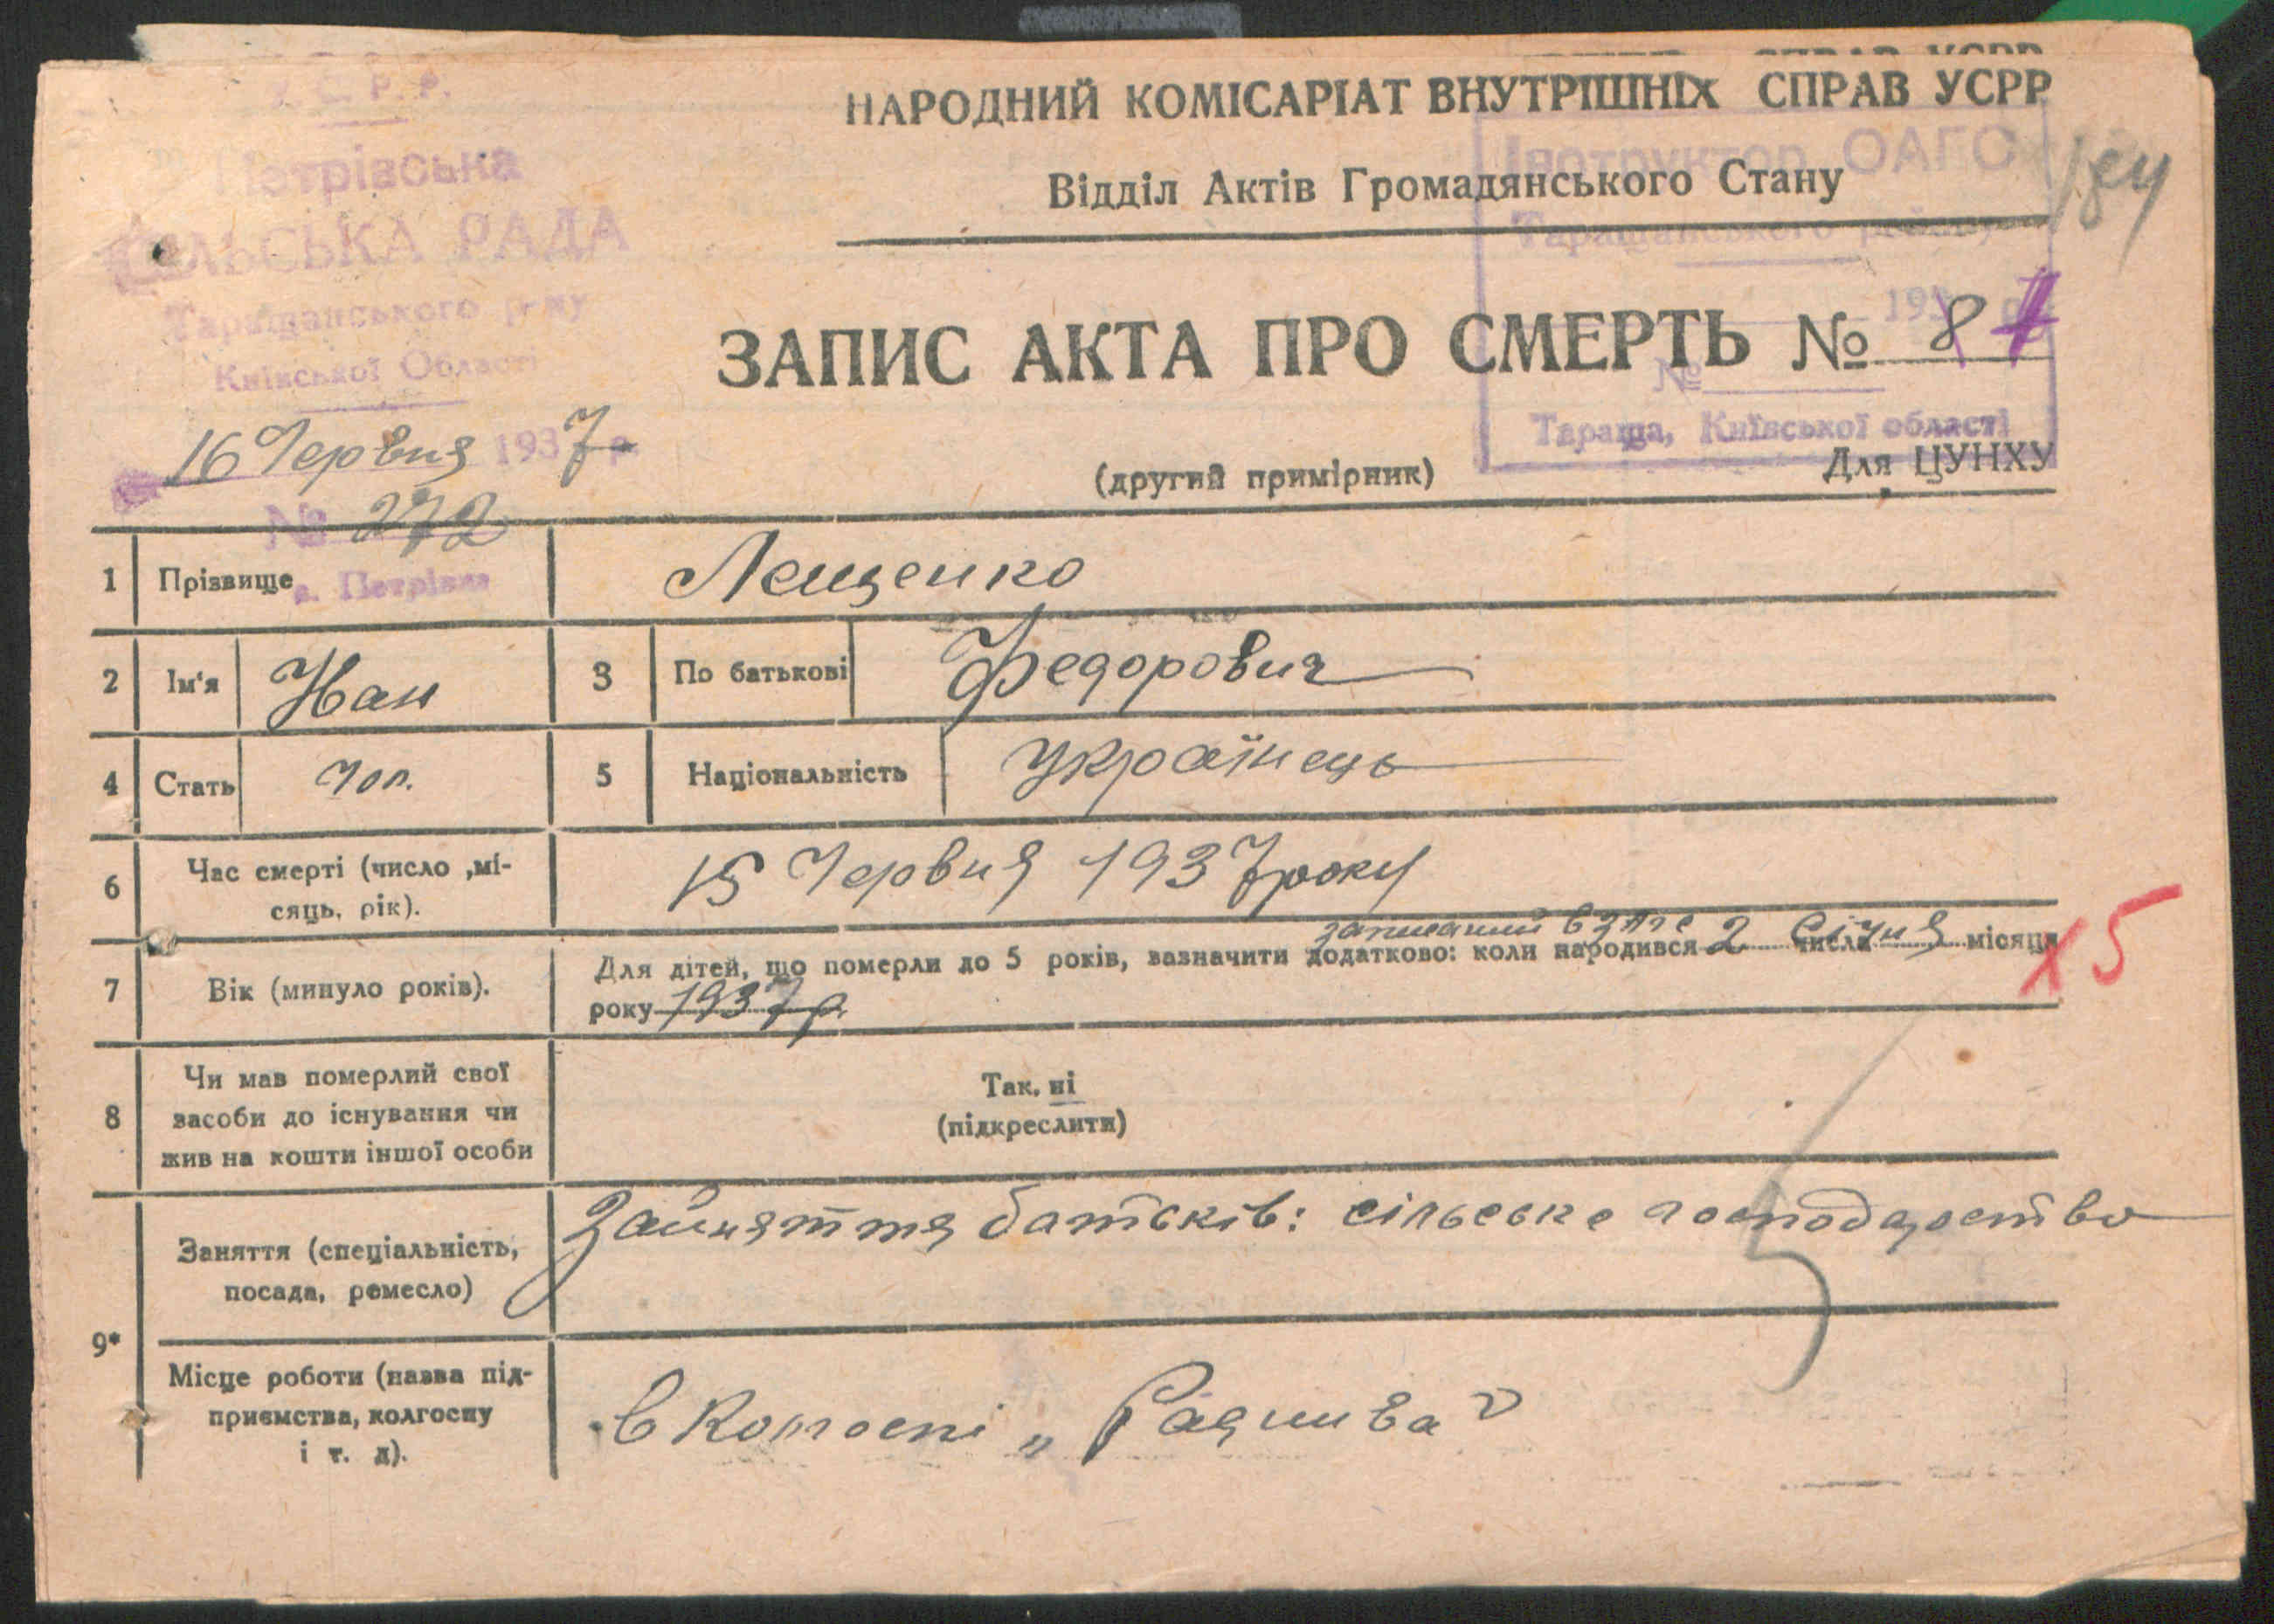 У. С. Р. Р.
Петрівська
СІЛЬСЬКА РАДА
Таращанського р-ну
Київської Области
16 Червня 1937 р.
№ 272
с. Петрівка
НАРОДНИЙ КОМІСАРІАТ ВНУТРІШНІХ СПРАВ УСРР
Відділ Актів Громадянського Стану
Інструктор ОАГС
Таращанського району
193 р.
№
Тараща, Київської області
ЗАПИС АКТА ПРО СМЕРТЬ № 8
(другий примірник)
Для ЦУНХУ
1 Прізвище Лещенко
2 Ім'я Йван 3 По батькові Федорович
4 Стать Чол. 5 Національність Українець
6 Час смерті (число ,мі-
сяць, рік). 15 Червня 1937 року
записаний в загс
7 Вік (минуло років). Для дітей, що померли до 5 років, зазначити додатково: коли народився 2 числа Січня місяця
року 1937 р.
Х5
8 Чи мав померлий свої
засоби до існування чи
жив на кошти іншої особи
Так, ні
(підкреслити)
9* Заняття (спеціальність,
посада, ремесло)
Зайняття батьків: сільське господарство
5
Місце роботи (назва під-
приємства, колгоспу
і т. д).
в колгоспі „